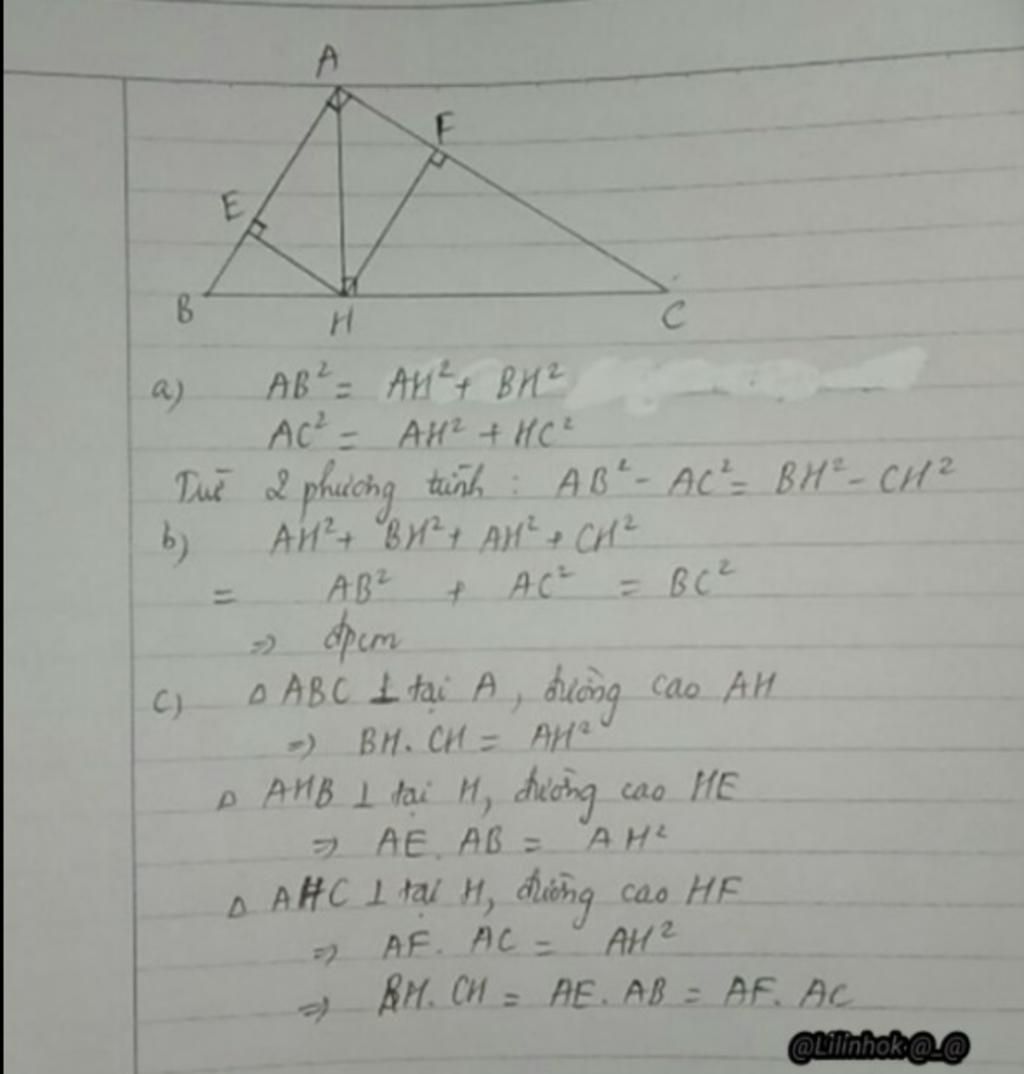 A
F
E
B
H
C
a) AB² = AH² + BH²
AC² = AH² + HC²
Từ 2 phương trình : AB² - AC² = BH² - CH²
b) AH² + BH² + AH² + CH²
= AB² + AC² = BC²
=> đpcm
c) Δ ABC ⊥ tại A, đường cao AH
=> BH. CH = AH²
Δ AHB ⊥ tại H, đường cao HE
=> AE. AB = AH²
Δ AHC ⊥ tại H, đường cao HF
=> AF. AC = AH²
=> BH. CH = AE. AB = AF. AC
@Lilinhok@_@